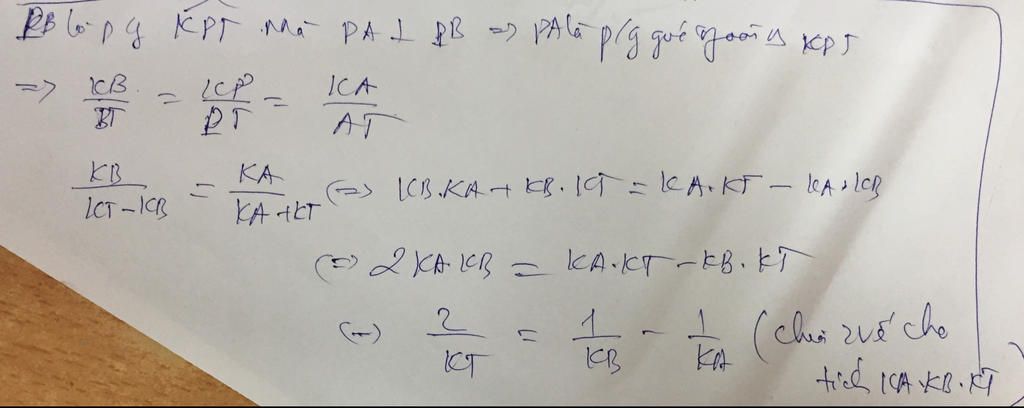 PB là p/g KPT mà PA ⊥ PB => PA là p/g góc ngoài KPT
=> KB/BT = KP/PT = KA/AT
KB/(KT-KB) = KA/(KA+KT) <=> KB.KA + KB.KT = KA.KT - KA.KB
<=> 2KA.KB = KA.KT - KB.KT
<=> 2/KT = 1/KB - 1/KA (chia 2 vế cho
tích KA.KB.KT)